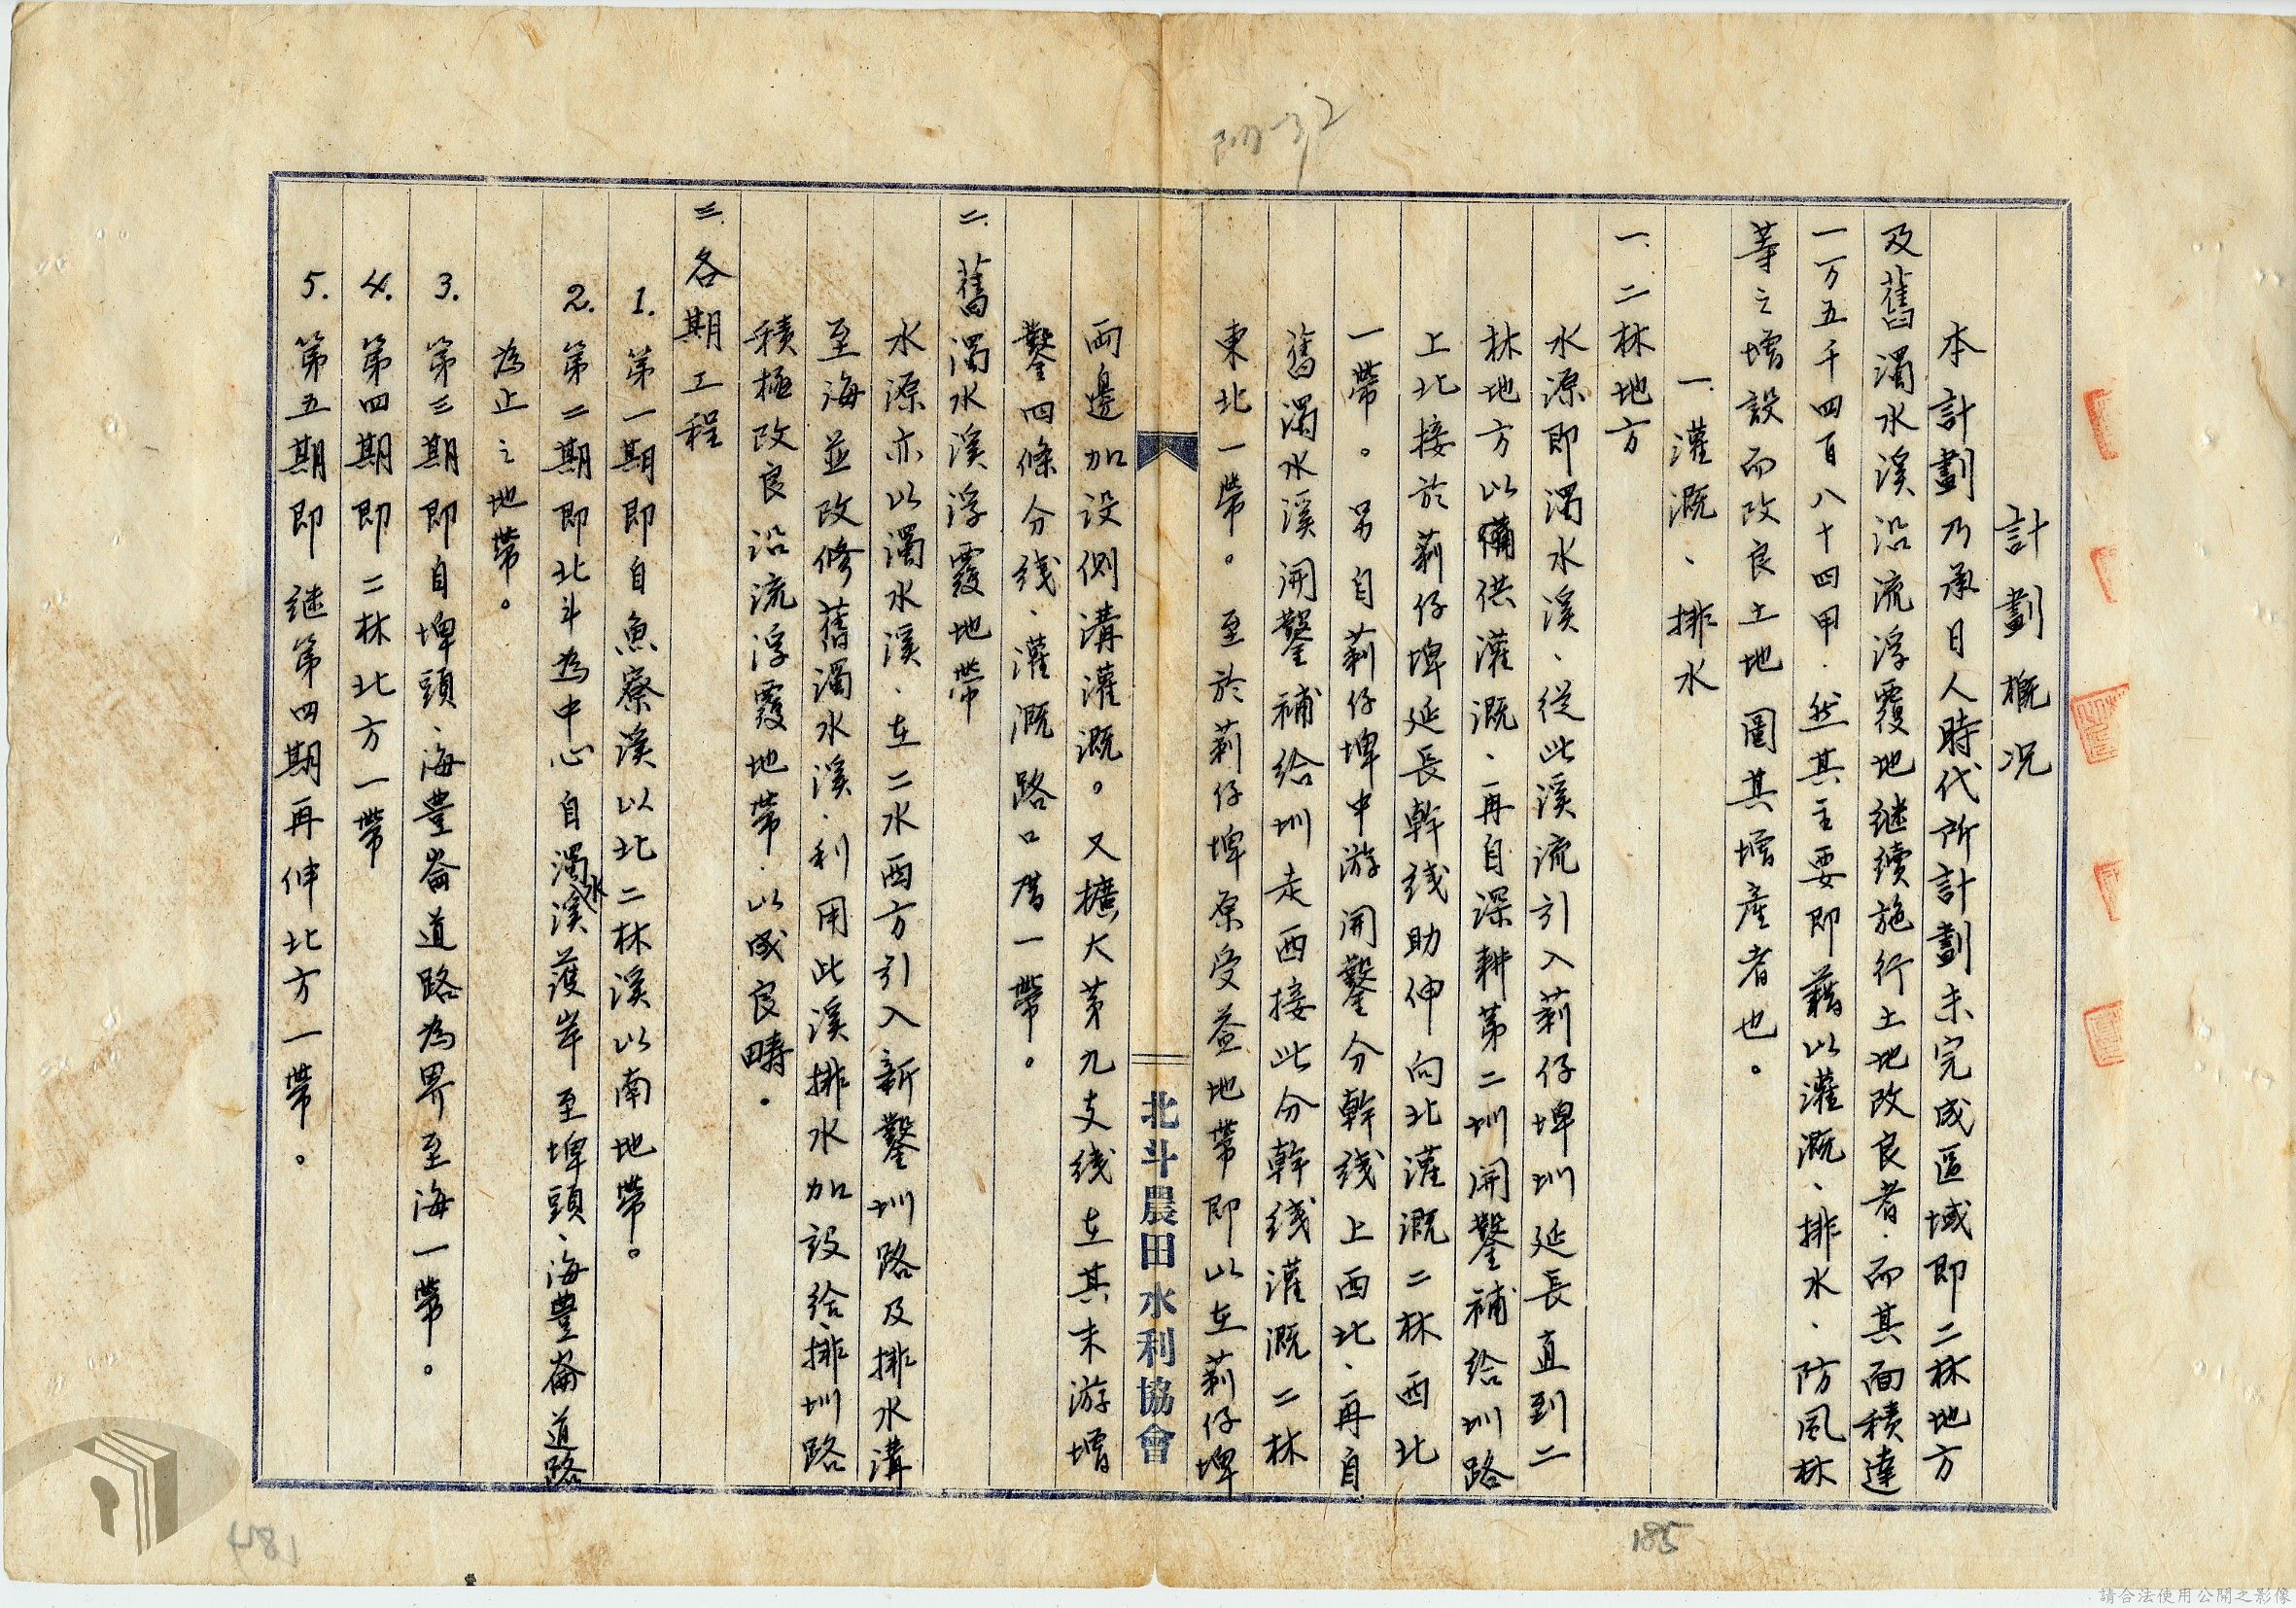 計劃概況
本計劃乃承日人時代所計劃未完成區域即二林地方
及舊濁水溪沿流浮覆地継續施行土地改良者．而其面積達
一万五千四百八十四甲．然其主要即藉以灌溉、排水．防風林
等之增設而改良土地圖其增產者也。
一．灌溉、排水
一．二林地方
水源即濁水溪、從此溪流引入莿仔埤圳延長直到二
林地方以備供灌溉、再自深耕第二圳開鑿補給圳路
上北接於莿仔埤延長幹线助伸向北灌溉二林西北
一帶。另自莿仔埤中游開鑿分幹线上西北、再自
舊濁水溪開鑿補給圳走西接此分幹线灌溉二林
東北一帶。至於莿仔埤原受益地帶即以在莿仔埤
北斗農田水利協會
両邊加设側溝灌溉。又擴大第九支线在其末游增
鑿四條分线、灌溉路口厝一帶。
二．舊濁水溪浮覆地帶
水源亦以濁水溪、在二水西方引入新鑿圳路及排水溝
至海並改修舊濁水溪．利用此溪排水加設給、排圳路
積極改良沿流浮覆地帶．以成良疇．
三．各期工程
1. 第一期即自魚寮溪以北二林溪以南地帶。
2. 第二期即北斗為中心自濁水溪護岸至埤頭、海豊崙道路
為止之地帶。
3. 第三期即自埤頭、海豊崙道路為界至海一帶。
4. 第四期即二林北方一帶
5. 第五期即継第四期再伸北方一帶。
185
請合法使用公開之影像